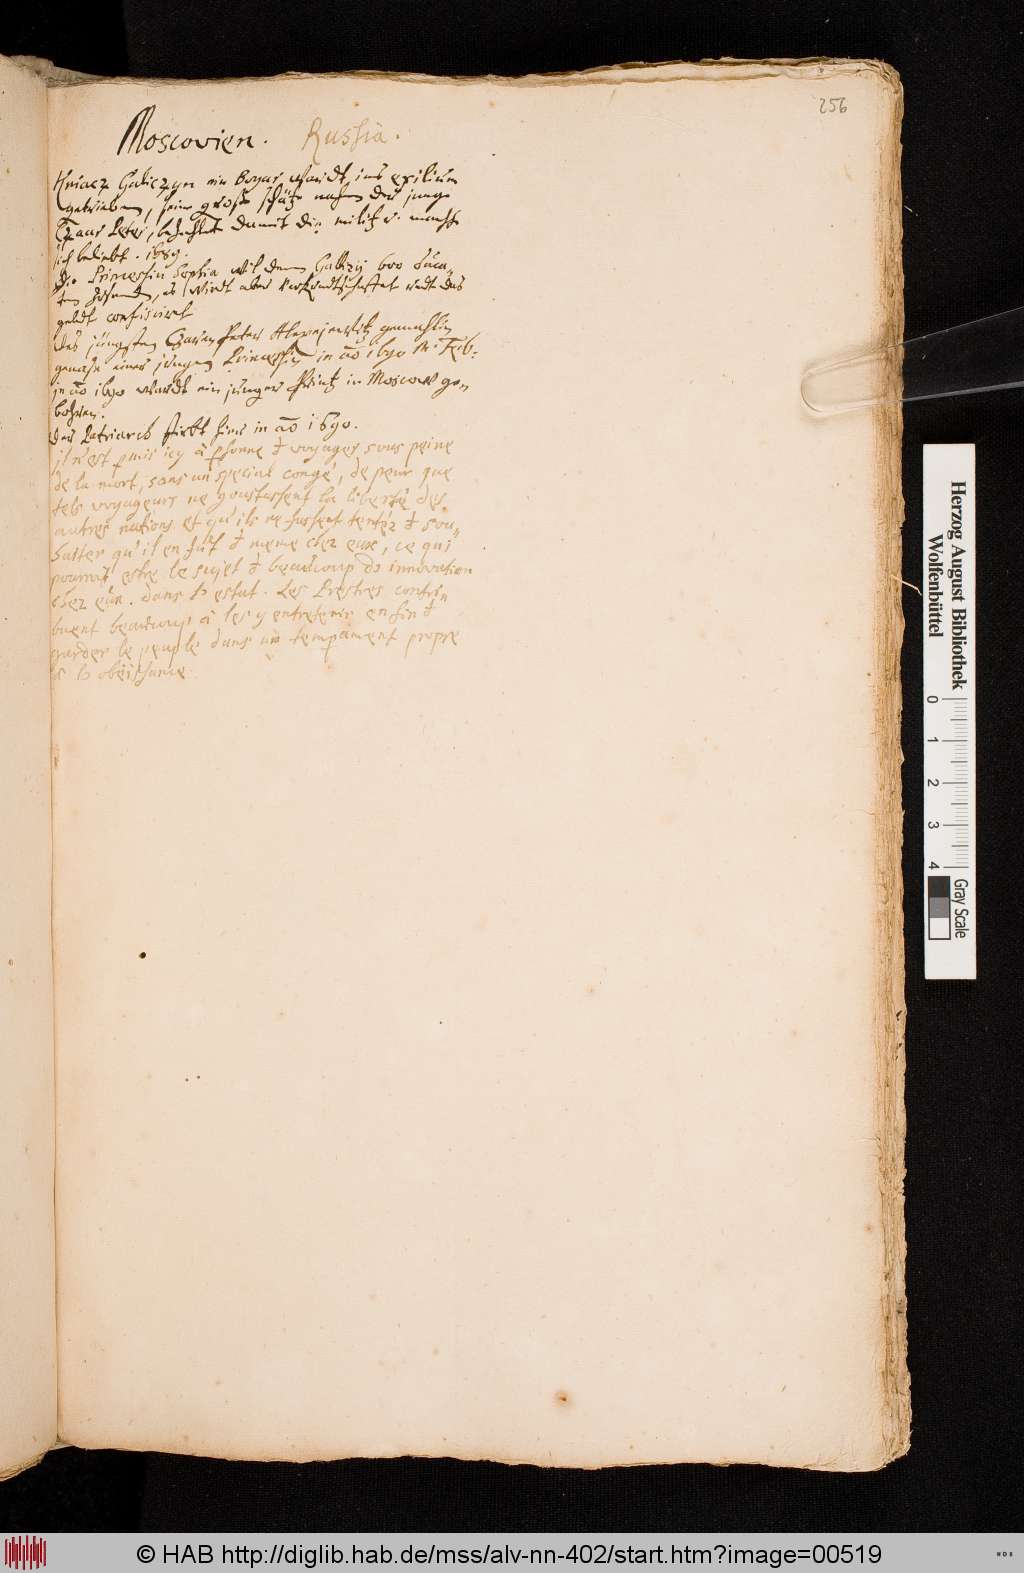 256
Moscovien. Russia.
Kniacz Galiczyn ein bojar wardt ins exilium
getrieben, seine große schätze nahm der junge
Czaar Peter, damit die militz v. machte
sich beliebt. 1689.
Die Princessin Sophia wil dem Galliczij 600 Duca-
ten, es wirdt aber verkundtschaftet undt das
geldt confisciret
des jüngsten Czaren Peter Alexejewitz gemahlin
genase einer jungen Princessin in ao 1690 M. Feb:
in ao 1690 wardt ein junger Printz in Moscow ge-
bohren.
der Patriarch stirbt hier in ao 1690.
il n'est permis icy à personne d voyager sous peine
de la mort, sans un special congé, de peur que
tels voyageurs ne goustassent la liberté des
autres nations et qu'ils ne fussent tentéz d sou-
haitter qu'il en fût d meme chez eux, ce qui
pourroit estre le sujet d beaucoup do innovation
chez eux. dans l'estat. Les Prestres contri-
buent beaucoup à les y entretenir en fin d
garder le peuple dans un temperament propre
à l'obeissance
Herzog August Bibliothek
Wolfenbüttel
0 1 2 3 4
Gray Scale
© HAB http://diglib.hab.de/mss/alv-nn-402/start.htm?image=00519
WDB